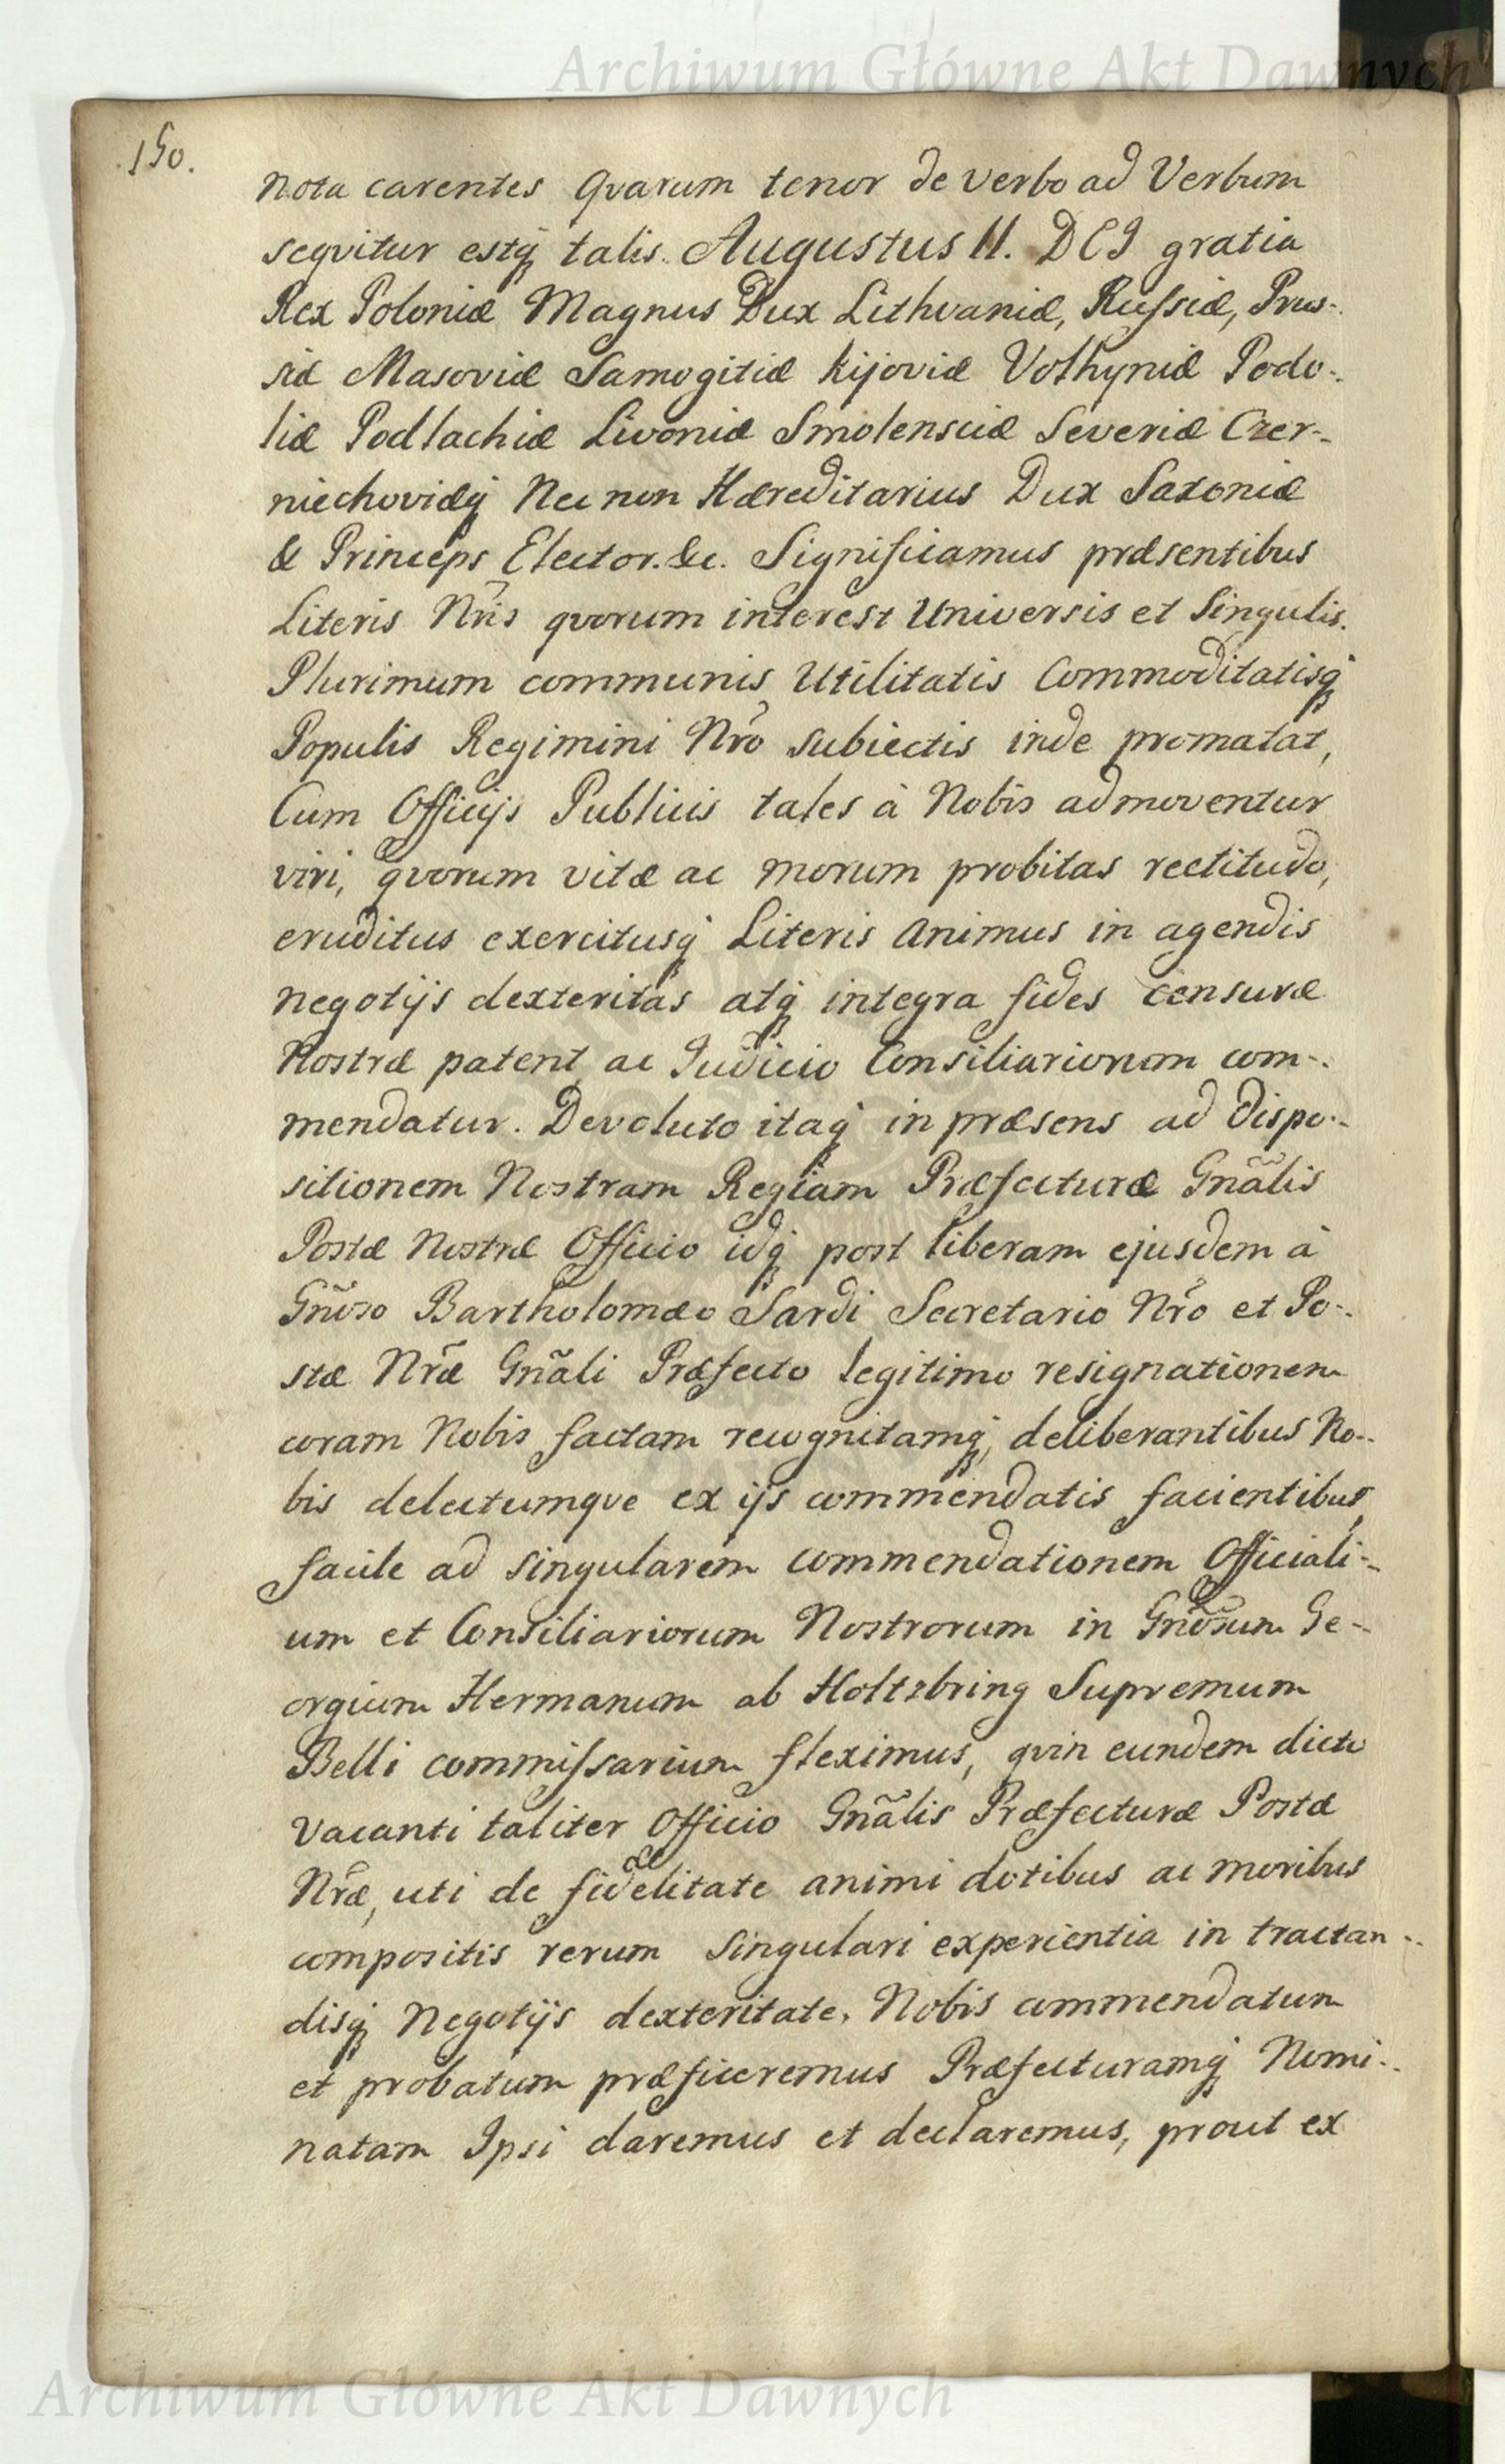 Archiwum Główne Akt Dawnych
150.
nota carentes Qvarum tenor de verbo ad Verbum
seqvitur estq̃ talis. Augustus II. DEI gratia
Rex Poloniæ Magnus Dux Lithvaniæ, Rufsiæ, Prus-
siæ Masoviæ Samogitiæ Kijoviæ Volhyniæ Podo-
liæ Podlachiæ Livoniæ Smolensciæ Severiæ Czer-
niechoviæq̃ Nec non Hæreditarius Dux Saxoniæ
& Princeps Elector. &c. Significamus præsentibus
Literis Nr̃is qvorum interest Universis et Singulis.
Plurimum communis Utilitatis Commoditatisq̃
Populis Regimini Nr̃o subiectis inde promanat,
Cum Officijs Publicis tales à Nobis admoventur
viri, qvorum vitæ ac morum probitas rectitudo,
eruditus exercitusq̃ Literis Animus in agendis
negotijs dexteritas atq̃ integra fides censuræ
Nostræ patent ac Judicio Consiliariorum com-
mendatur. Devoluto itaq̃ in præsens ad dispo-
sitionem Nostram Regiam Præfecturæ Gñalis
Postæ Nostræ Officio idq̃ post liberam ejusdem à
Gñoso Bartholomæo Sardi Secretario Nr̃o et Po-
stæ Nr̃æ Gñali Præfecto legitimo resignationem
coram Nobis factam recognitamq̃, deliberantibus No-
bis delectumqve ex ijs commendatis facientibus,
facile ad singularem commendationem Officiali-
um et Consiliariorum Nostrorum in Gñosum Ge-
orgium Hermanum ab Holtzbring Supremum
Belli commifsarium fleximus, qvin eundem dicto
vacanti taliter Officio Gñalis Præfecturæ Postæ
Nr̃æ, uti de fidelitate animi dotibus ac moribus
compositis rerum singulari experientia in tractan-
disq̃ Negotijs dexteritate, Nobis commendatum
et probatum præficeremus Præfecturamq̃ Nomi-
natam Ipsi daremus et declaremus, prout ex
Archiwum Główne Akt Dawnych